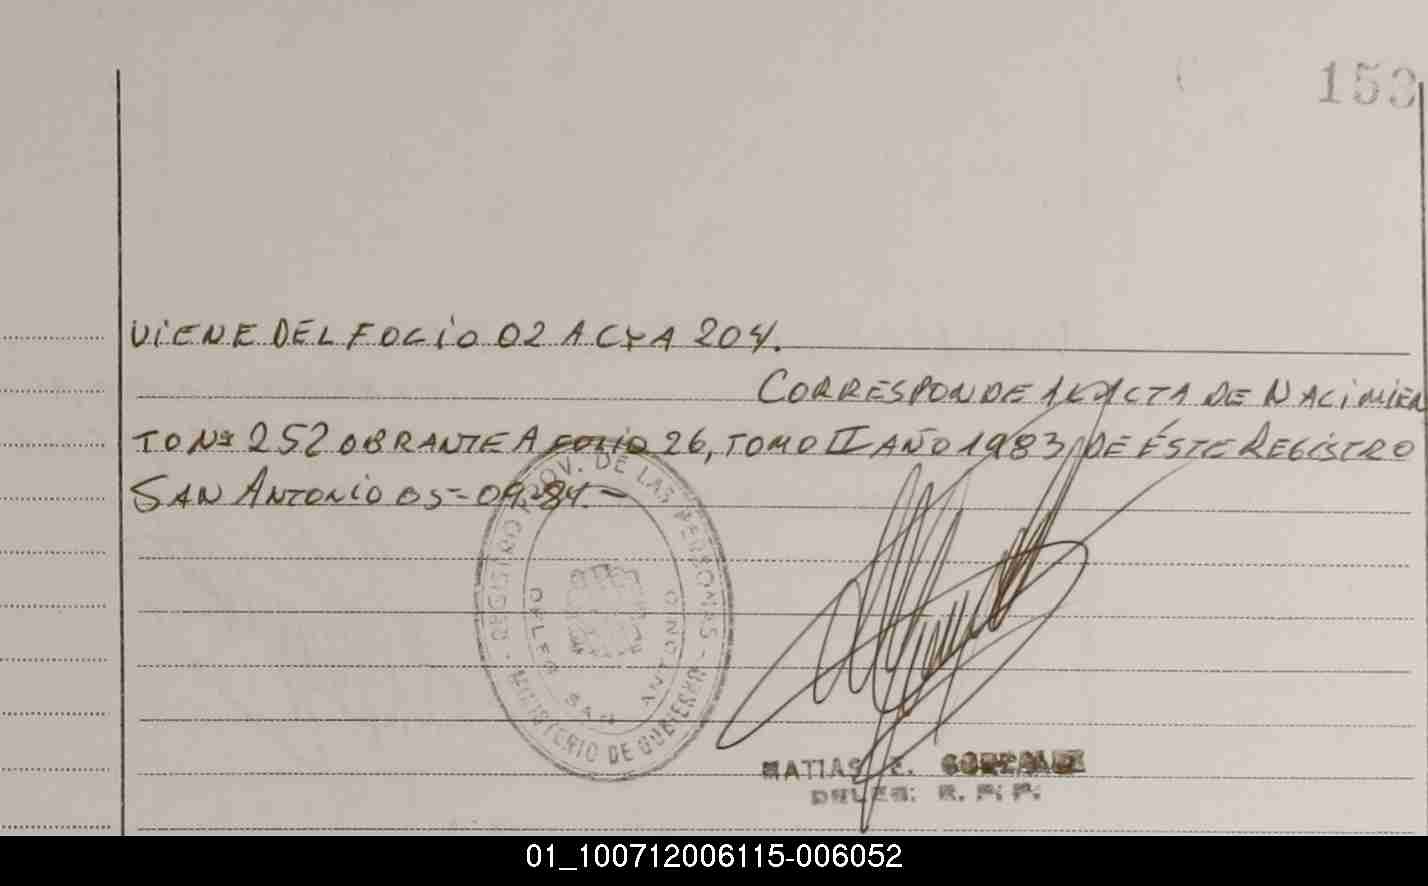 153
VIENE DEL FOLIO 02 ACTA 204.
CORRESPONDE AL ACTA DE NACIMIEN
TO Nº 252 OBRANTE A FOLIO 26, TOMO II AÑO 1983, DE ÉSTE REGISTRO
SAN ANTONIO 05-09-84.-
REGISTRO PROV. DE LAS PERSONAS - MINISTERIO DE GOBIERNO -
DELEG. SAN ANTONIO
MATIAS GONZALEZ
DELEG. R. P. P.
01_100712006115-006052